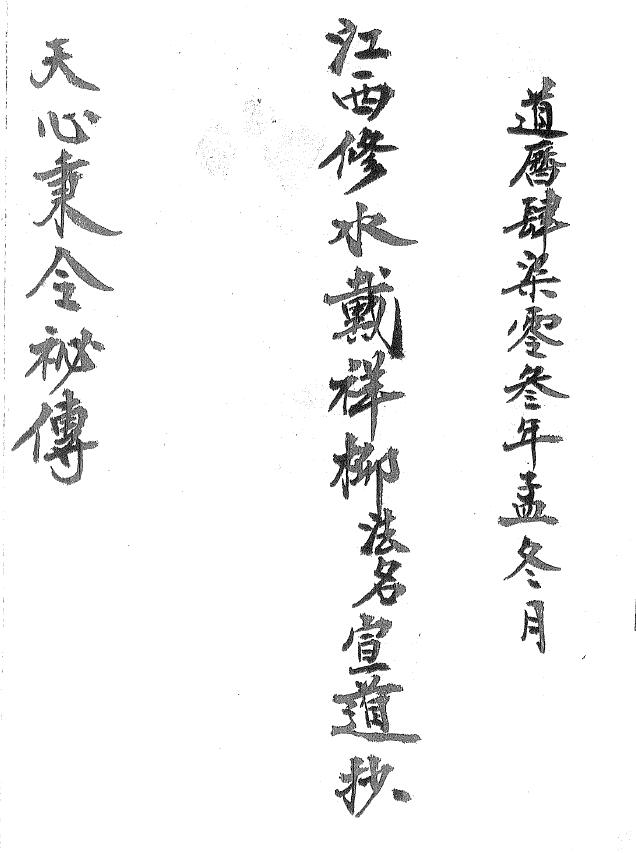 道曆肆柒零叄年孟冬月
江西修水戴祥柳法名宣道抄
天心秉令祕傳